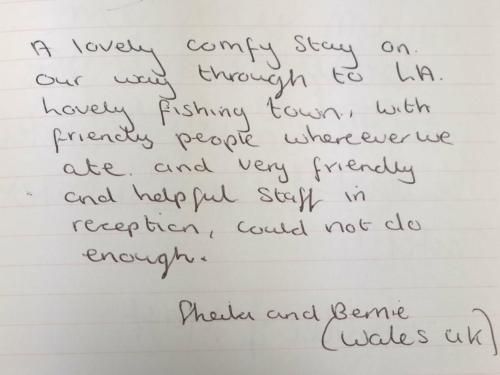 A lovely comfy stay on.
our way through to LA.
Lovely fishing town, with
friendly people whereever we
ate. and very friendly
and helpful staff in
reception, could not do
enough.
Sheila and Bernie
(Wales UK)